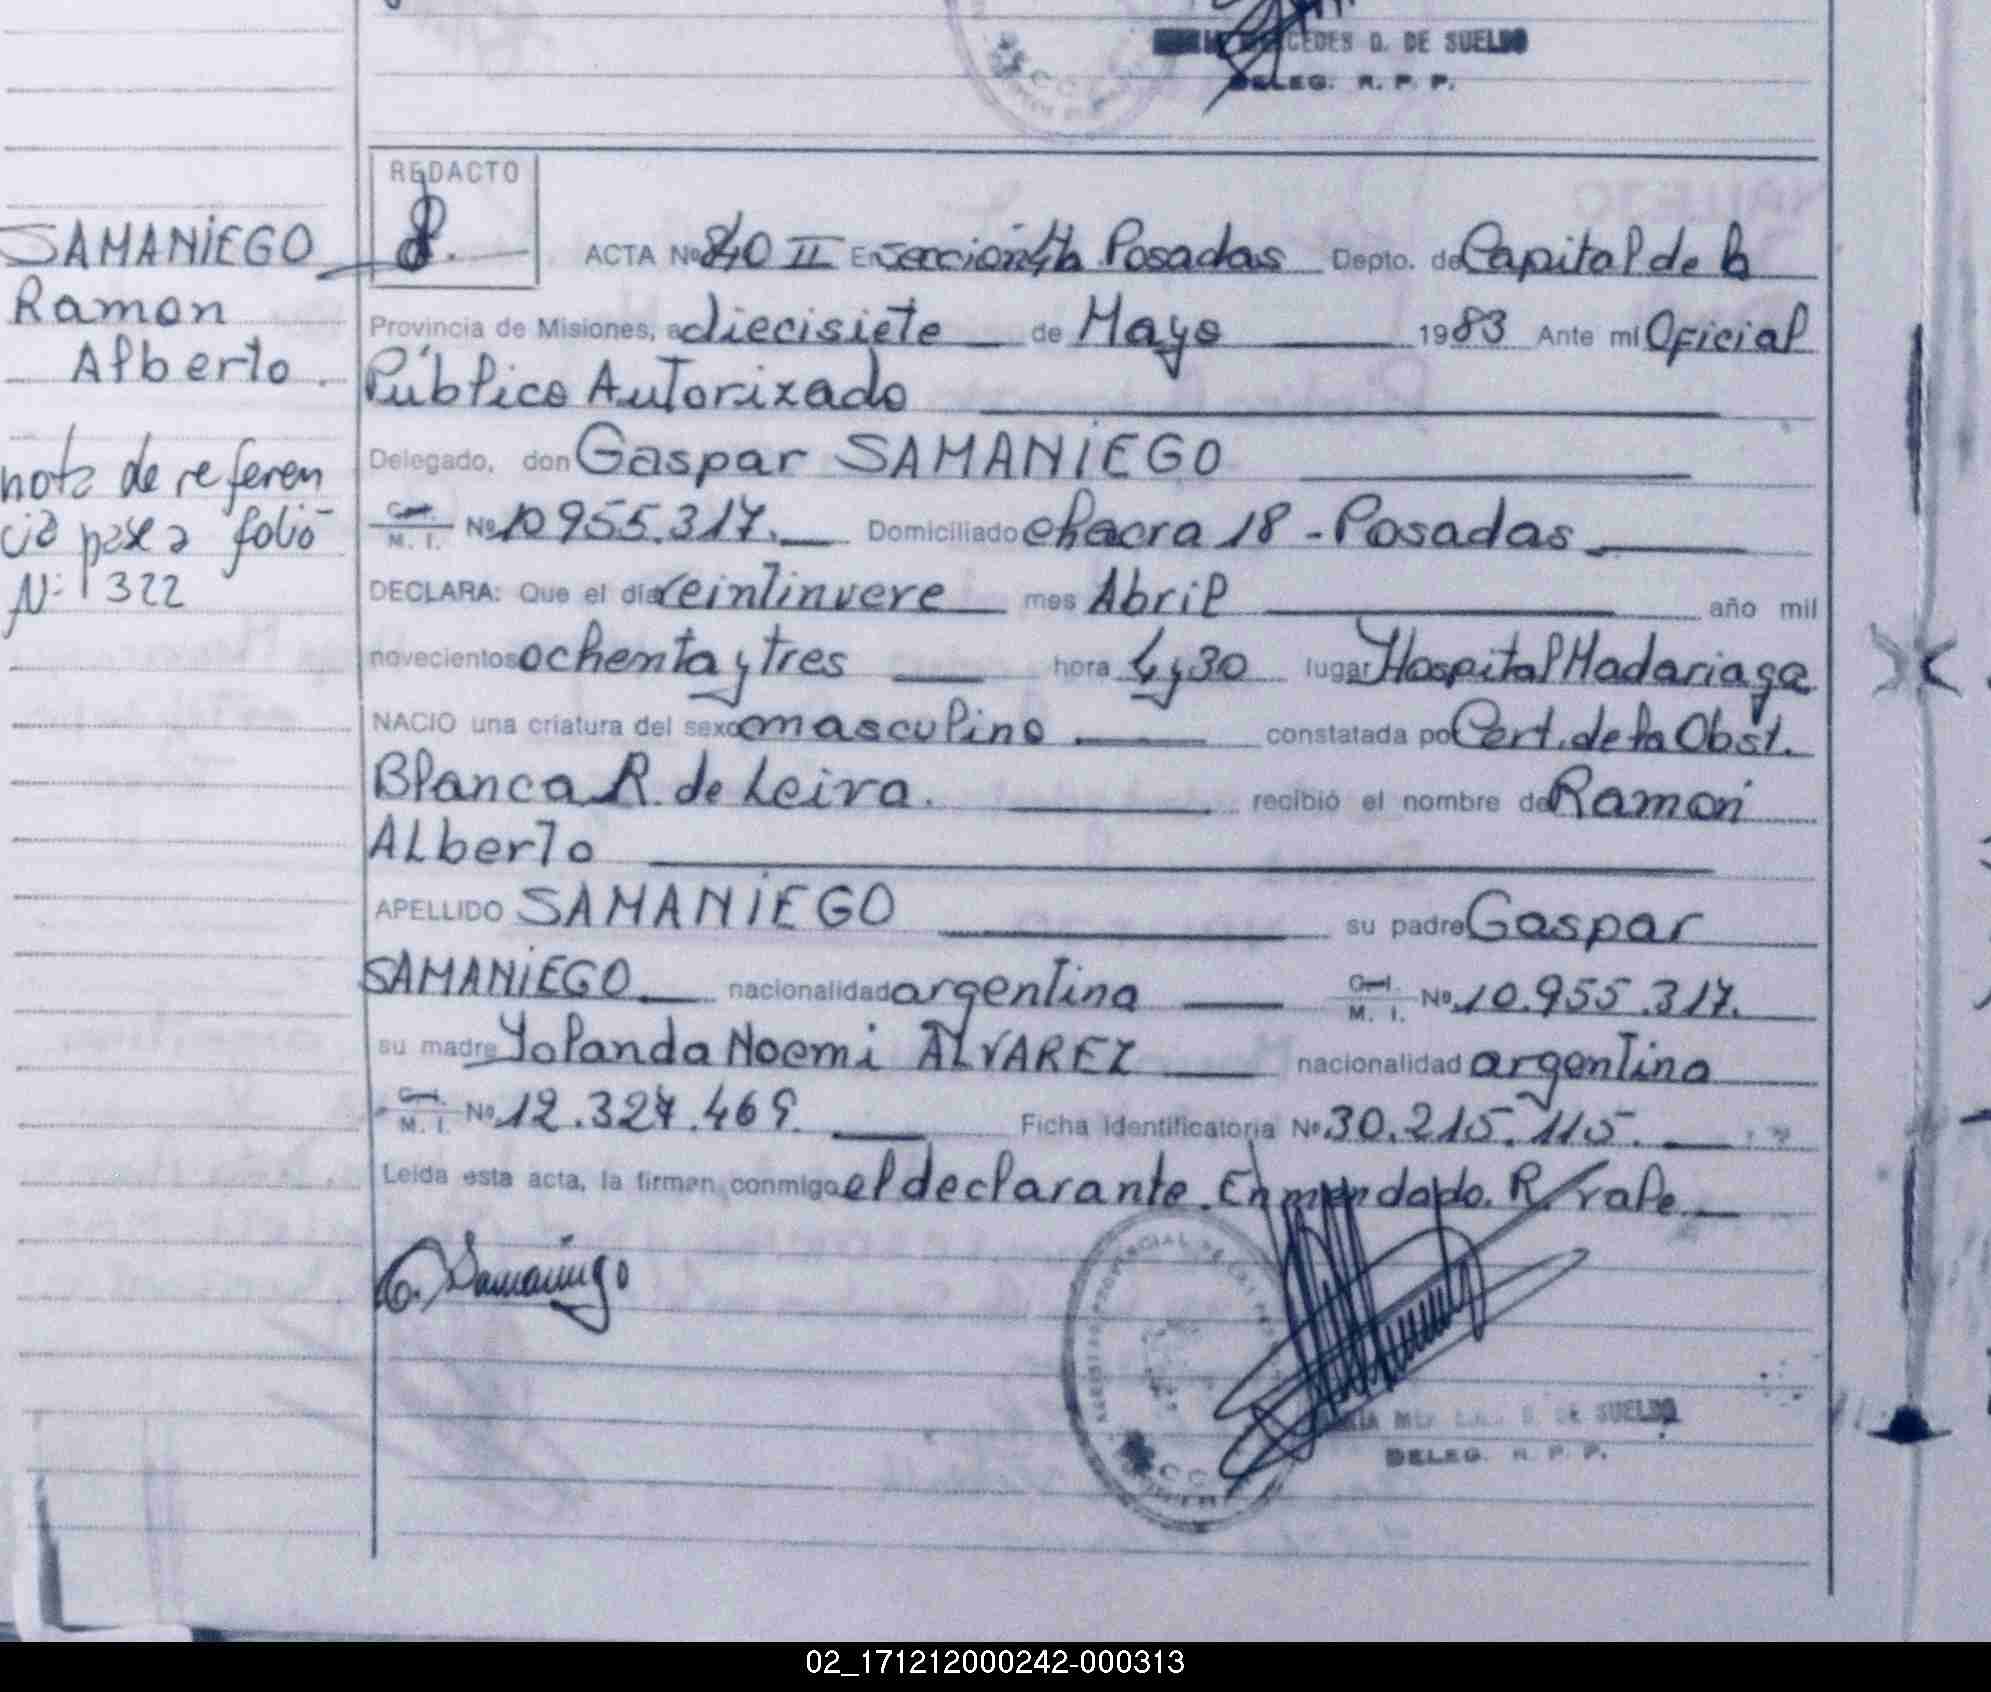 CEDES D. DE SUELDO
DELEG. R. P. P.
REDACTO
SAMANIEGO
Ramon
Alberto.
nota de referen
cia pase a folio
Nº 322
ACTA Nº 840 II En sección 4ta Posadas Depto. de Capital de la
Provincia de Misiones, a diecisiete de Mayo 1983 Ante mi Oficial
Público Autorizado
Delegado, don Gaspar SAMANIEGO
C.I. M. I. Nº 10.955.317. Domiciliado chacra 18 - Posadas
DECLARA: Que el día veintinueve mes Abril año mil
novecientos ochenta y tres hora 4 y 30 lugar Hospital Madariaga
NACIO una criatura del sexo masculino constatada por Cert. de la Obst.
Blanca R. de Leiva. recibió el nombre de Ramon
ALberto
APELLIDO SAMANIEGO su padre Gaspar
SAMANIEGO nacionalidad argentina C.I. M. I. Nº 10.955.317.
su madre Yolanda Noemi ALVAREZ nacionalidad argentina
C.I. M. I. Nº 12.327.469. Ficha Identificatoria Nº 30.215.115.
Leida esta acta, la firman conmigo el declarante. Enmendado. R/ vale
G. Samaniego
D. DE SUELDO
DELEG. R. P. P.
02_171212000242-000313